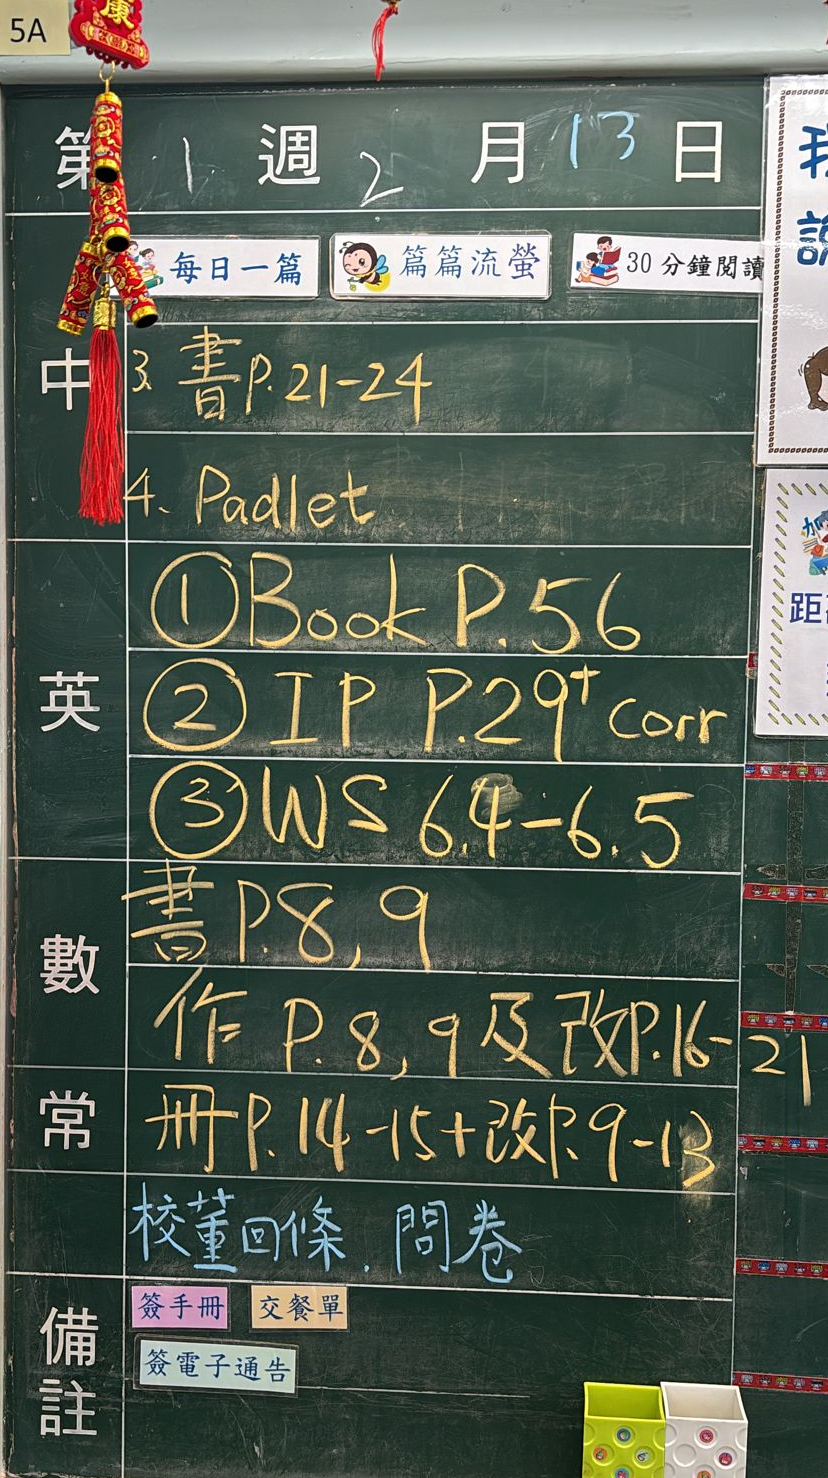 5A
康
第 1 週 2 月 13 日
每日一篇 篇篇流螢 30分鐘閱讀
中
3. 書P.21-24
4. Padlet
英
①Book P.56
②IP P.29+corr
③WS 6.4-6.5
數
書P.8,9
作 P.8,9及改P.16-21
常
冊P.14-15+改P.9-13
校董回條.問卷
備註
簽手冊 交餐單
簽電子通告